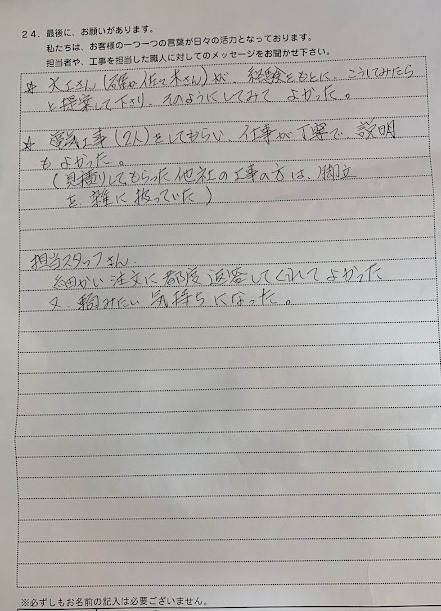 24．最後に、お願いがあります。
私たちは、お客様の一つ一つの言葉が日々の活力となっております。
担当者や、工事を担当した職人に対してのメッセージをお聞かせ下さい。
☆ 大工さん（確か佐々木さん）が 経験をもとに、こうしてみたら
と提案して下さり、そのようにしてみて よかった。
☆ 電気工事（2人）をしてもらい、仕事が丁寧で 説明
もよかった。
（見積りしてもらった他社の工事の方は、脚立
を 雑に扱っていた）
担当スタッフさん
細かい注文に都度返答してくれてよかった
又 頼みたい気持ちになった。
※必ずしもお名前の記入は必要ございません。